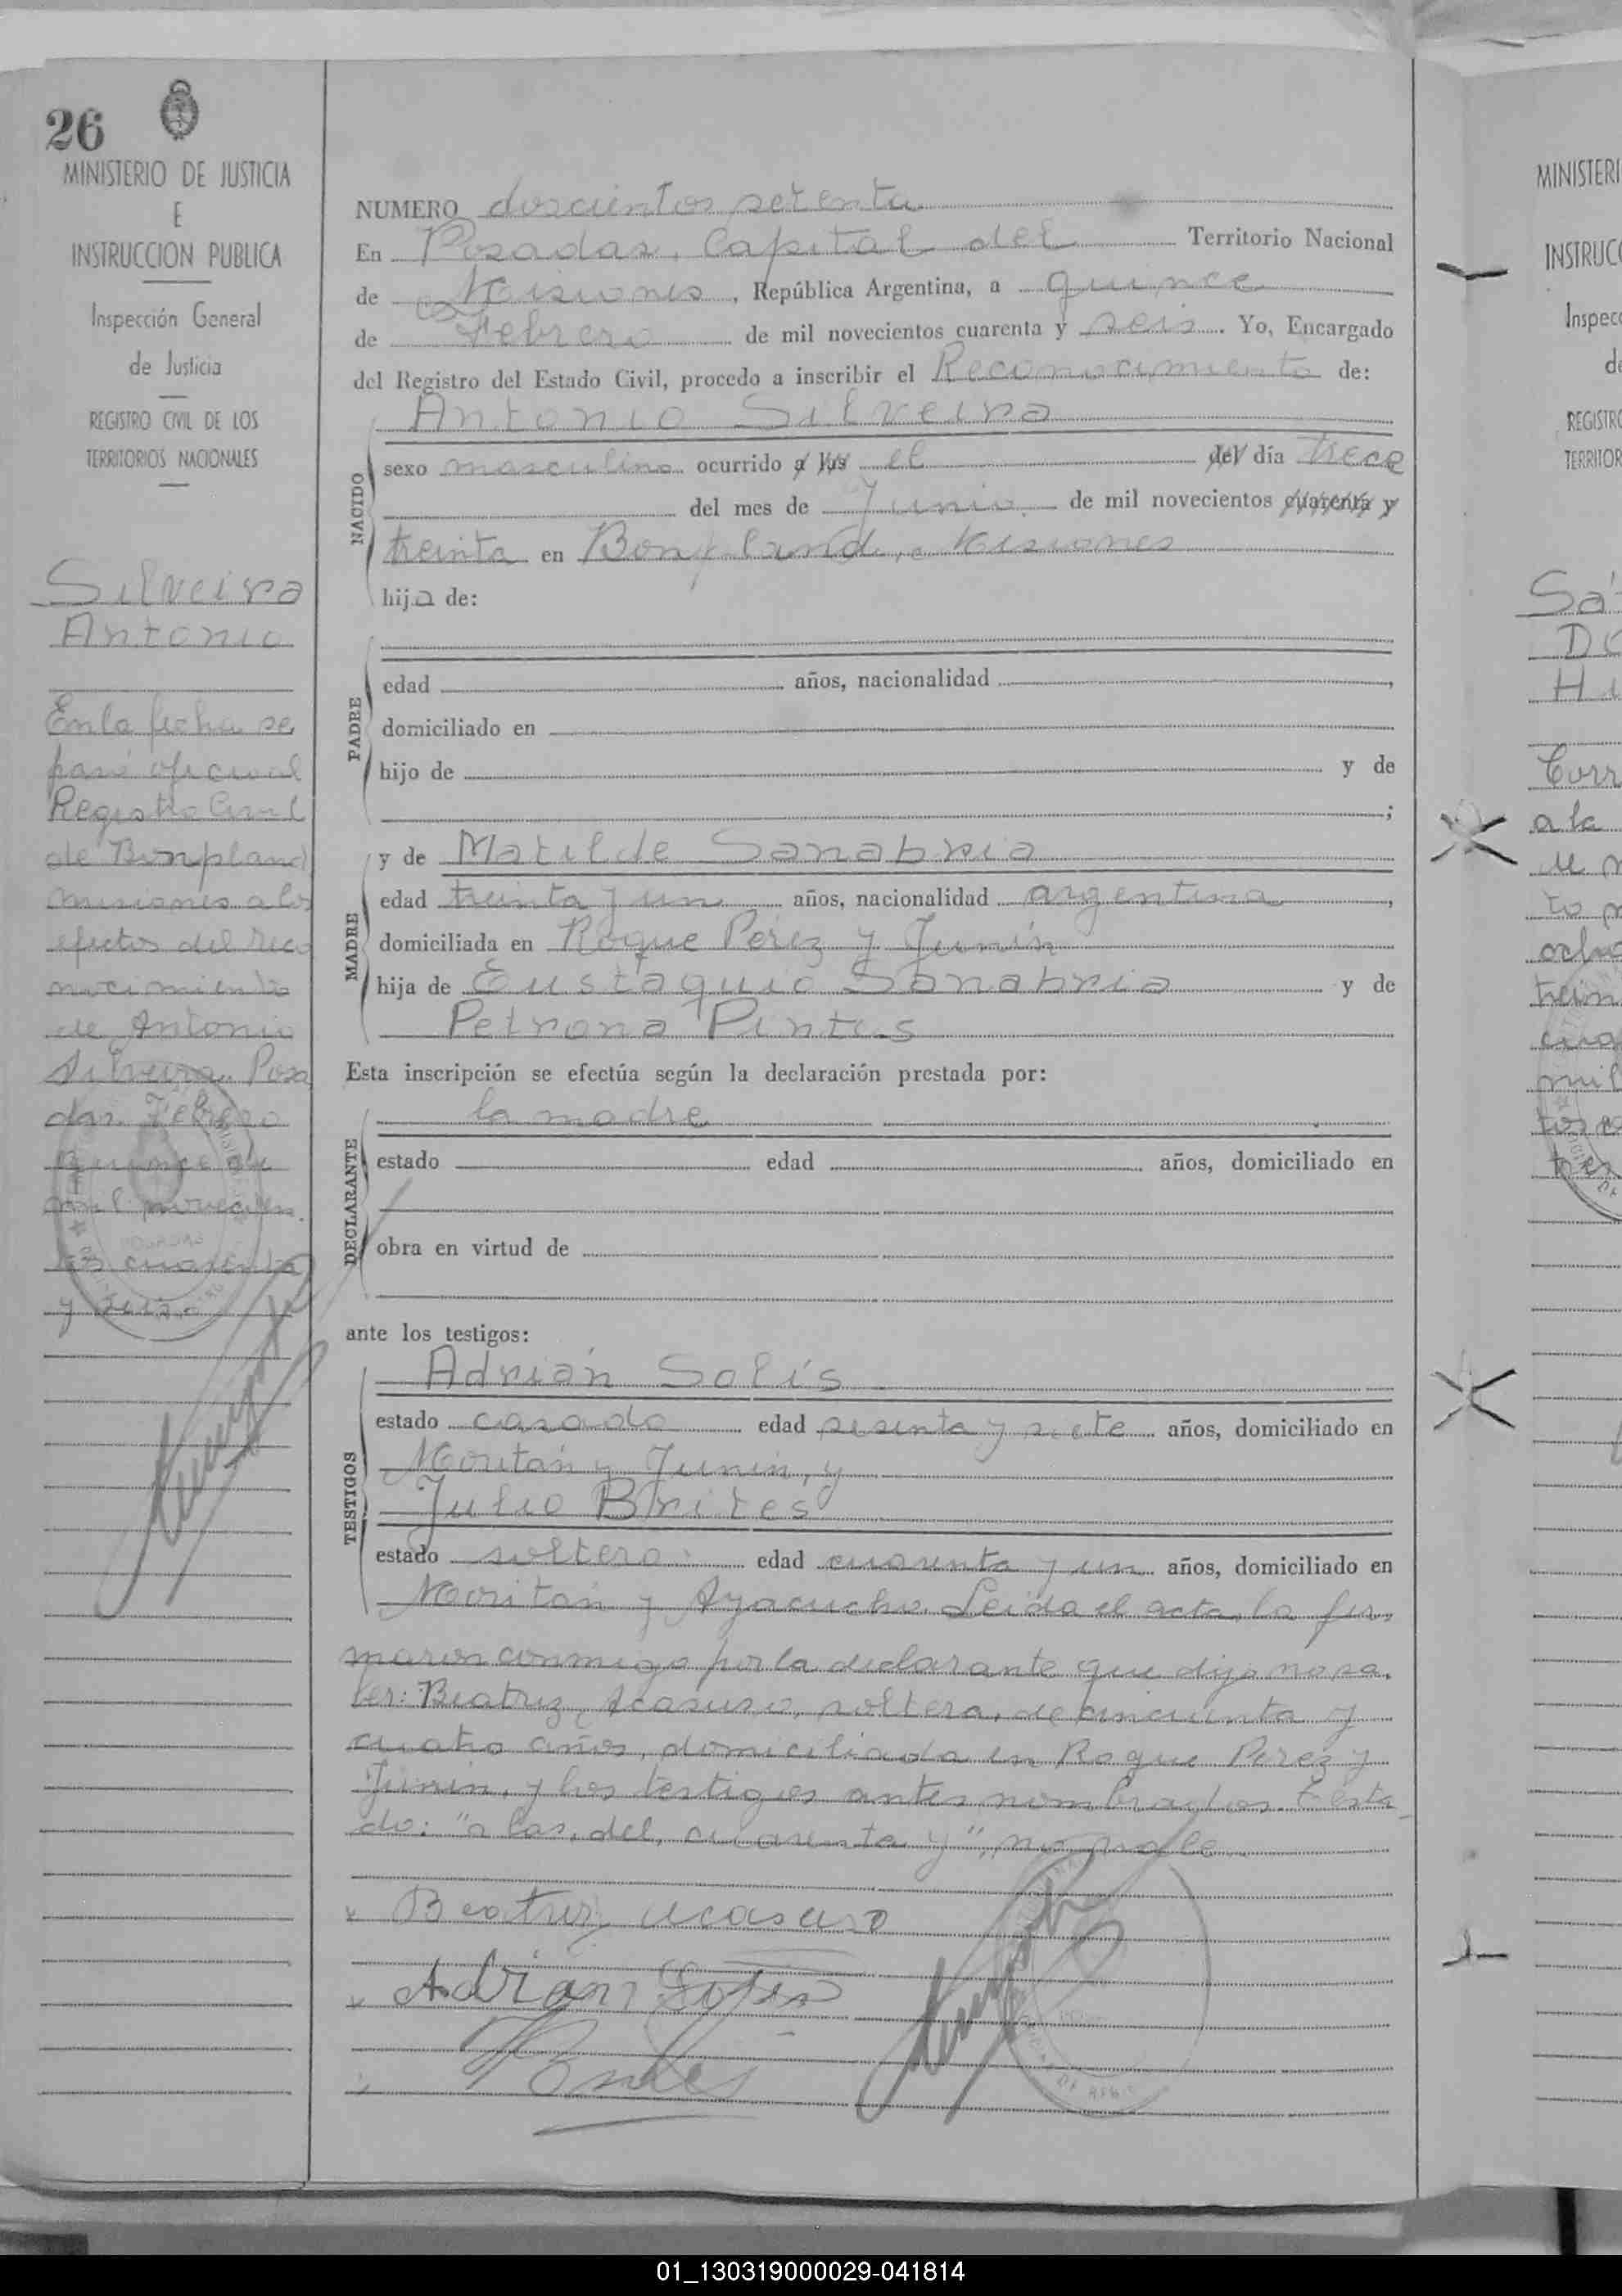 26
MINISTERIO DE JUSTICIA
E
INSTRUCCION PUBLICA
Inspección General
de Justicia
REGISTRO CIVIL DE LOS
TERRITORIOS NACIONALES
Silveira
Antonio
En la fecha se
pasó oficio al
Registro Civil
de Bonpland
misiones a los
efectos del reco
nocimiento
de Antonio
Silveira. Posa
das. Febrero
quince de
mil novecien
tos cuarenta
y seis.
NUMERO doscientos setenta
En Posadas, Capital del Territorio Nacional
de Misiones, República Argentina, a quince
de Febrero de mil novecientos cuarenta y seis. Yo, Encargado
del Registro del Estado Civil, procedo a inscribir el Reconocimiento de:
Antonio Silveira
NACIDO
sexo masculino ocurrido a las el del día trece
del mes de Junio de mil novecientos cuarenta y
treinta en Bonpland, Misiones
hijo de:
PADRE
edad años, nacionalidad ,
domiciliado en
hijo de y de
;
MADRE
y de Matilde Sanabria
edad treinta y un años, nacionalidad argentina,
domiciliada en Roque Pérez y Junín
hija de Eustaquio Sanabria y de
Petrona Pintos
Esta inscripción se efectúa según la declaración prestada por:
DECLARANTE
la madre
estado edad años, domiciliado en
obra en virtud de
ante los testigos:
TESTIGOS
Adrián Solís
estado casado edad sesenta y siete años, domiciliado en
y Junín, y
Julio Brites
estado soltero edad cuarenta y un años, domiciliado en
y Ayacucho. Leída el acta, la fir
maron conmigo por la declarante que dijo no sa
ber: Beatriz Acasuso, soltera, de cincuenta y
cuatro años, domiciliada en Roque Perez y
Junín, y los testigos antes nombrados. Testa
do: "a las, del, cuarenta y", no vale.
Beatriz acasuso
Adrian Solis
Brites
MINISTERI
INSTRUC
Inspec
de
REGISTRO
TERRITOR
01_130319000029-041814